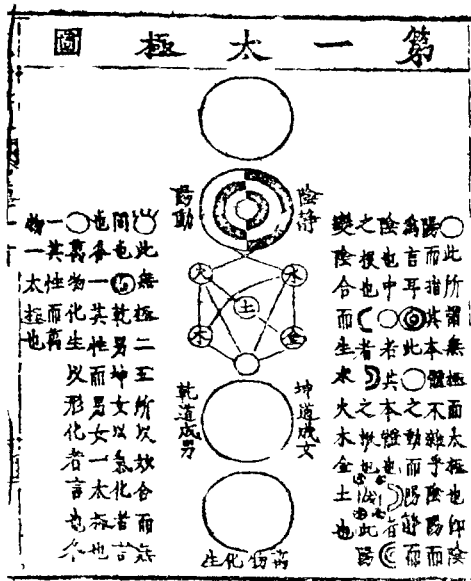 苐一太極圖
陰静
陽動
火
水
土
木
金
坤道成女
乾道成男
萬物化生
○此所謂無極而太極也即陰
陽而指其本體不雜乎陰陽而
爲言耳◎此○之動而陽静而
陰也中○者其本體也☽者
之根也☾者之根也此陽
變陰合而生水火木金土也
此無極二五所以妙合而無
間也○乾男坤女以氣化者言
也各一其性而男女一太極也
○萬物化生以形化者言也各
一其性而萬
物一太極也